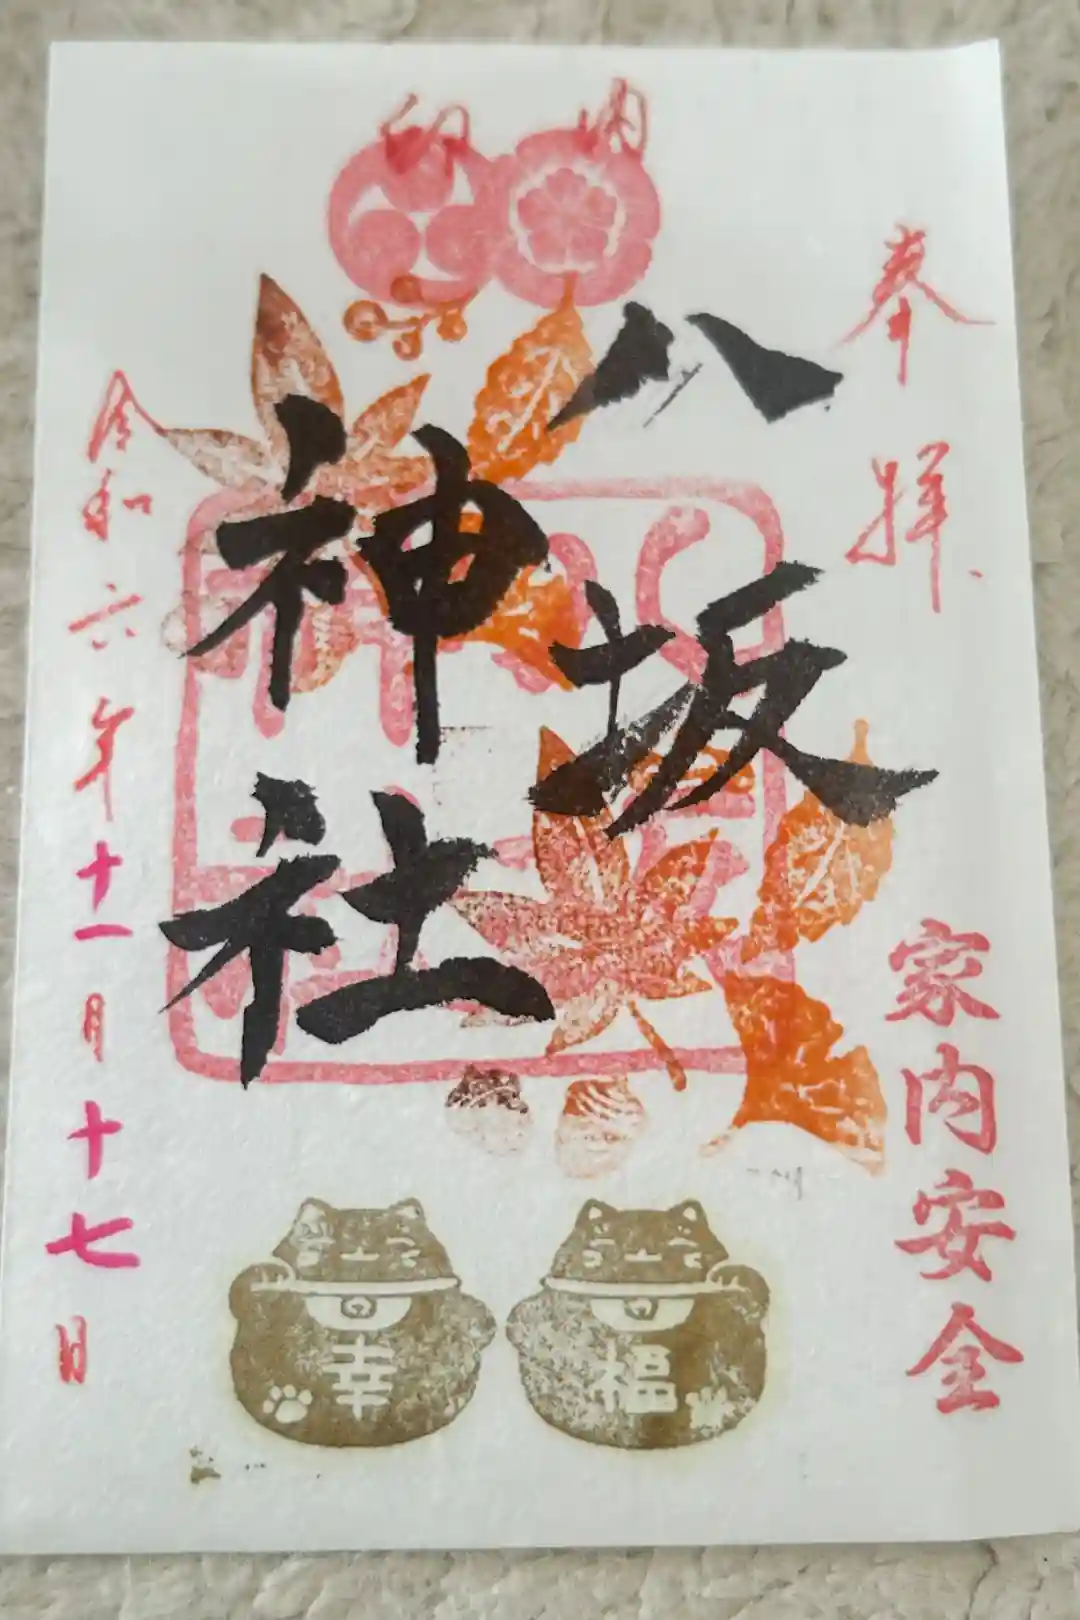 奉拝
家内安全
八坂
神社
令和六年十一月十七日
幸
福